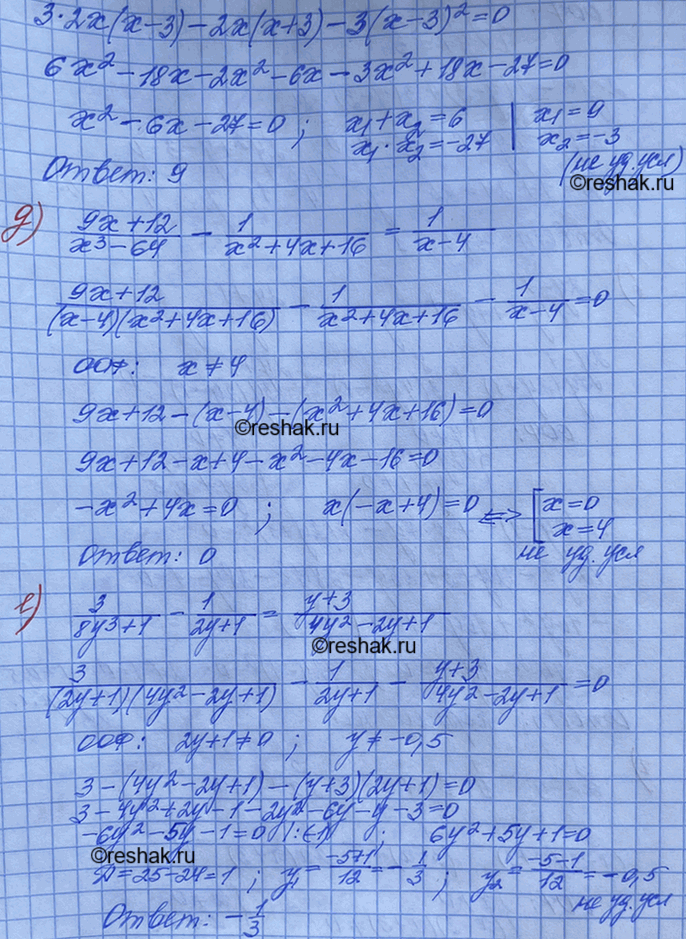 3·2x(x-3)-2x(x+3)-3(x-3)²=0
6x²-18x-2x²-6x-3x²+18x-27=0
x²-6x-27=0 ; x₁+x₂=6 | x₁=9
x₁·x₂=-27 | x₂=-3
(не уд. усл)
Ответ: 9
©reshak.ru
д) (9x+12)/(x³-64) - 1/(x²+4x+16) = 1/(x-4)
(9x+12)/((x-4)(x²+4x+16)) - 1/(x²+4x+16) - 1/(x-4) =0
ООФ: x≠4
9x+12-(x-4)-(x²+4x+16)=0
©reshak.ru
9x+12-x+4-x²-4x-16=0
-x²+4x=0 ; x(-x+4)=0 <=> [x=0
x=4
Ответ: 0 не уд. усл
е) 3/(8y³+1) - 1/(2y+1) = (y+3)/(4y²-2y+1)
©reshak.ru
3/((2y+1)(4y²-2y+1)) - 1/(2y+1) - (y+3)/(4y²-2y+1) =0
ООФ: 2y+1≠0 ; y≠-0,5
3-(4y²-2y+1)-(y+3)(2y+1)=0
3-4y²+2y-1-2y²-6y-y-3=0
-6y²-5y-1=0 |:(-1) ; 6y²+5y+1=0
©reshak.ru
D=25-24=1 ; y₁=(-5+1)/12=-1/3 ; y₂=(-5-1)/12=-0,5
не уд. усл
Ответ: -1/3